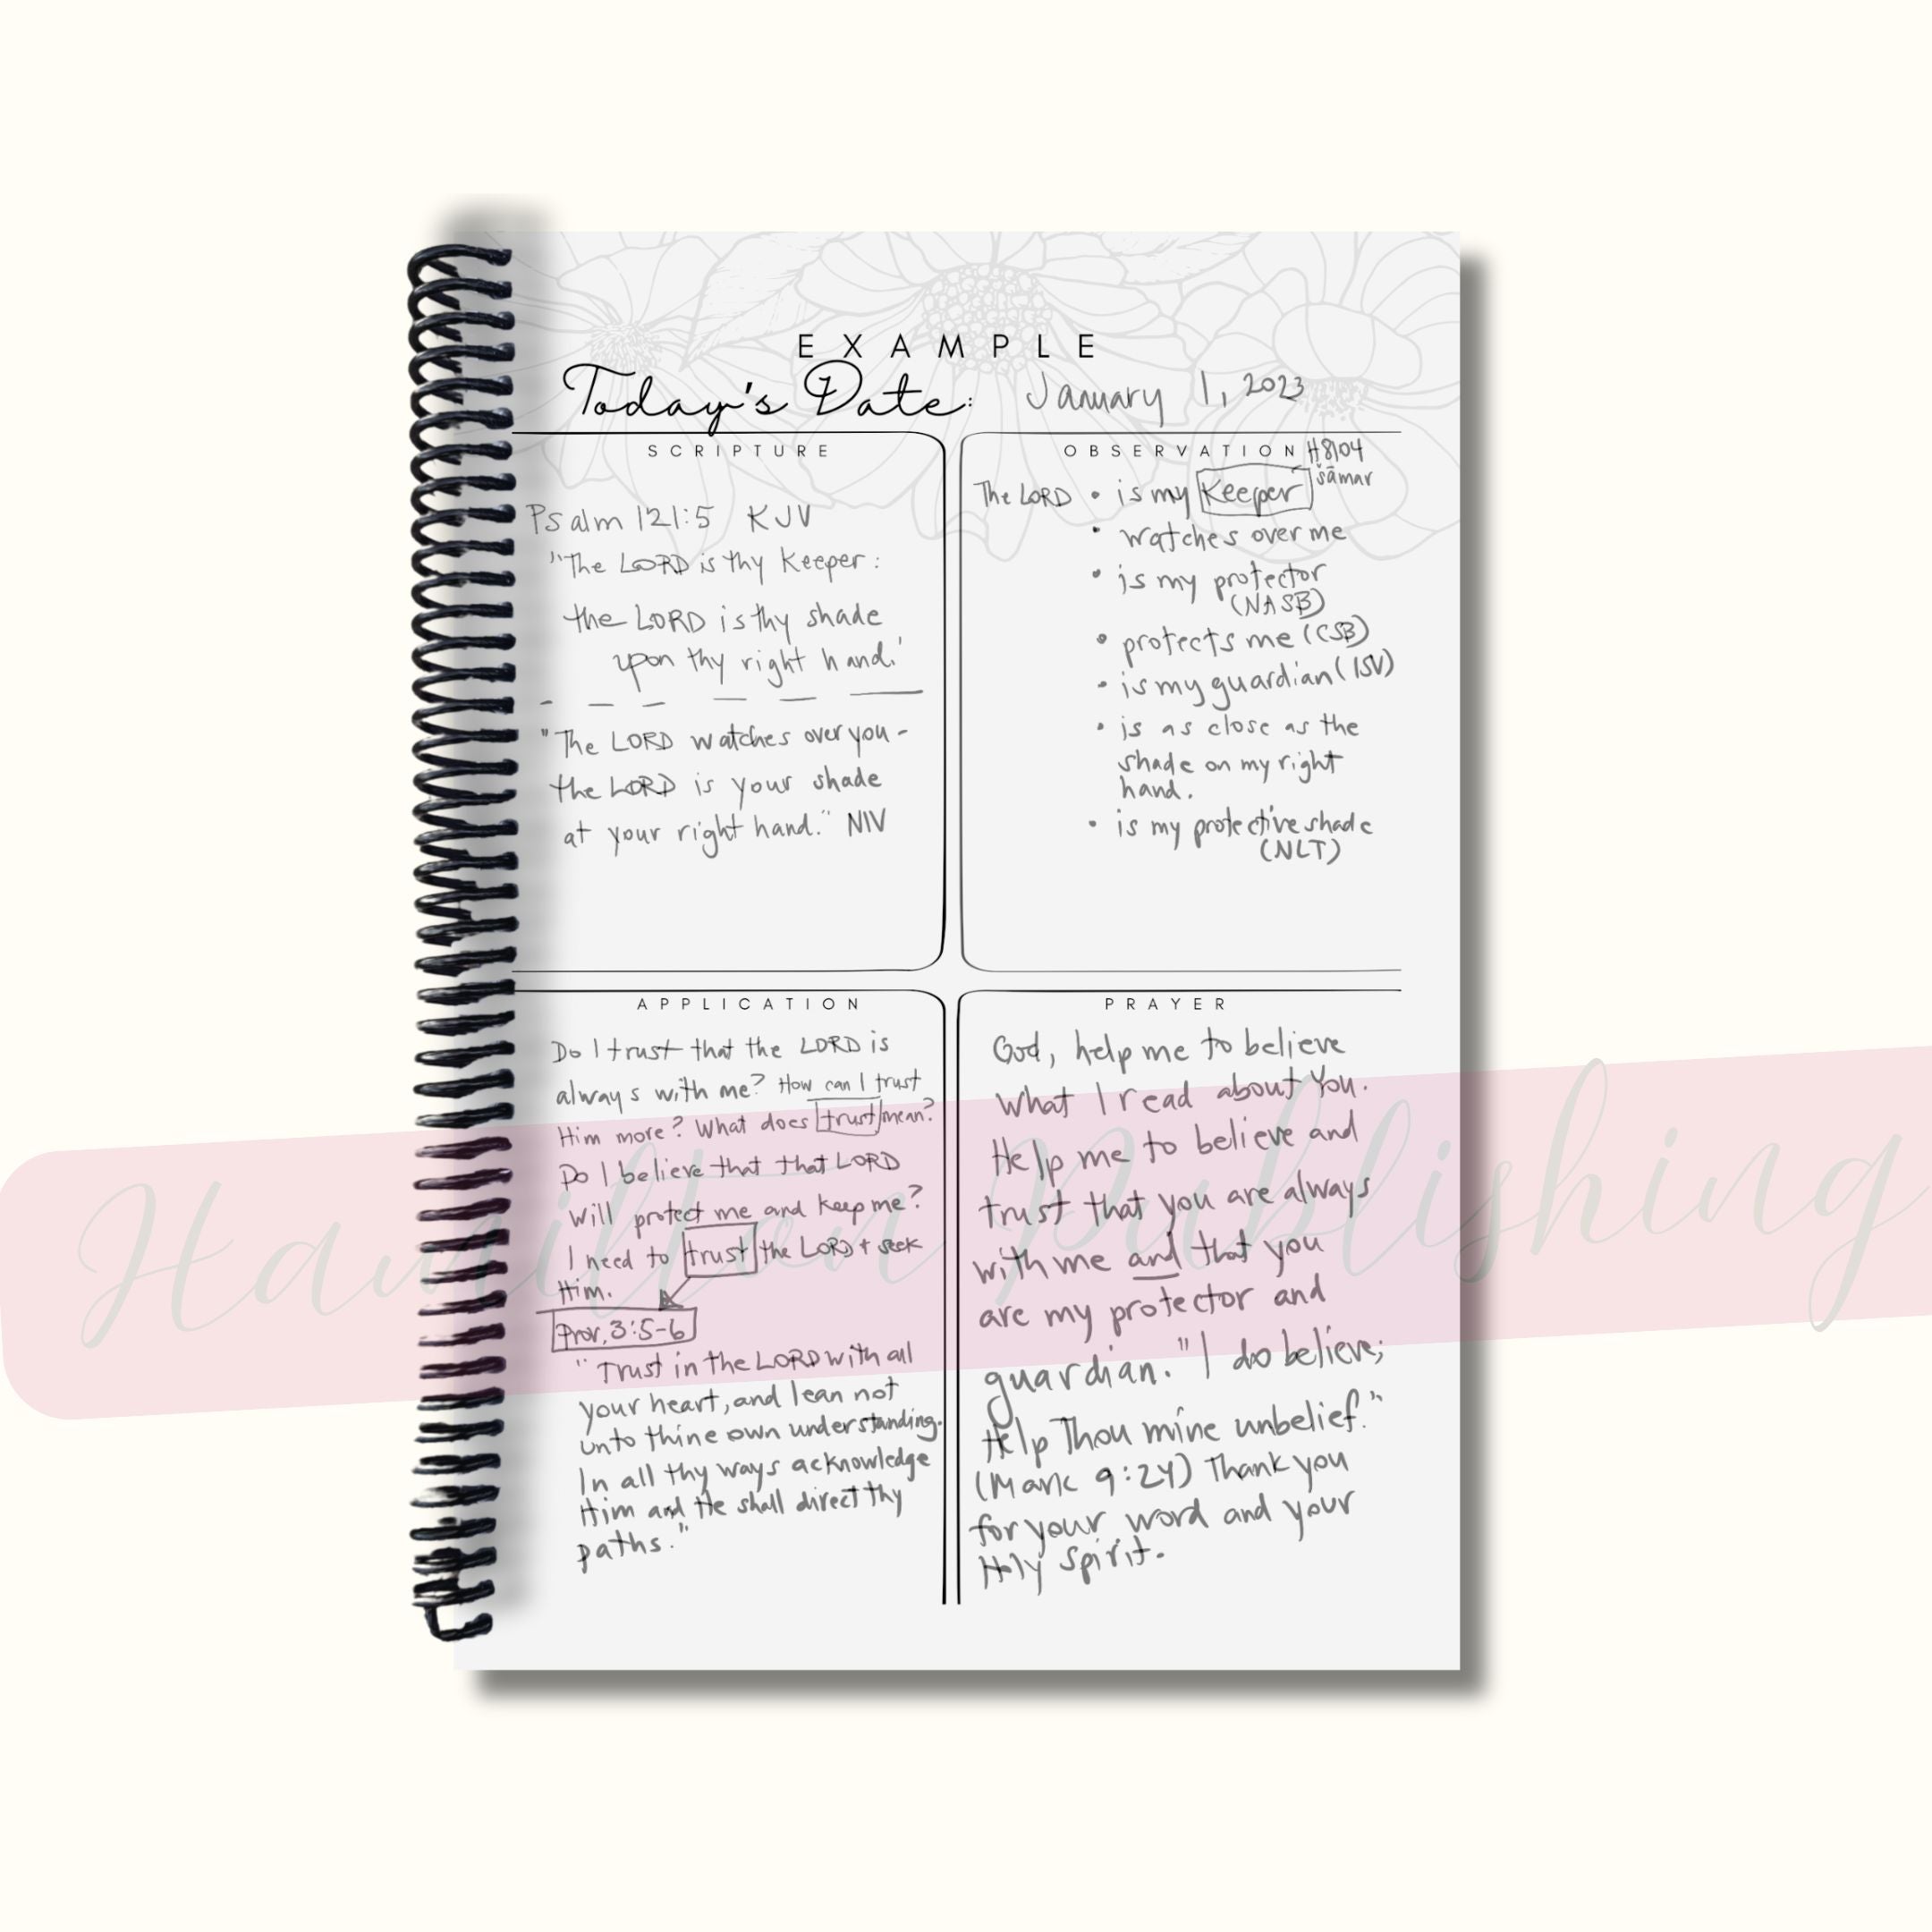 EXAMPLE
Today's Date: January 1, 2023
SCRIPTURE
Psalm 121:5 KJV
"The LORD is thy keeper:
the LORD is thy shade
upon thy right hand."
"The LORD watches over you-
the LORD is your shade
at your right hand." NIV
OBSERVATION H8104
šāmar
The LORD • is my Keeper
• watches over me
• is my protector
(NASB)
• protects me (CSB)
• is my guardian (ISV)
• is as close as the
shade on my right
hand.
• is my protective shade
(NLT)
APPLICATION
Do I trust that the LORD is
always with me? How can I trust
Him more? What does trust mean?
Do I believe that that LORD
will protect me and keep me?
I need to trust the LORD + seek
Him.
Prov. 3:5-6
"Trust in the LORD with all
your heart, and lean not
unto thine own understanding.
In all thy ways acknowledge
Him and He shall direct thy
paths."
PRAYER
God, help me to believe
what I read about You.
Help me to believe and
trust that you are always
with me and that you
are my protector and
guardian. "I do believe;
Help Thou mine unbelief."
(Mark 9:24) Thank you
for your word and your
Holy Spirit.
Hamilton Publishing